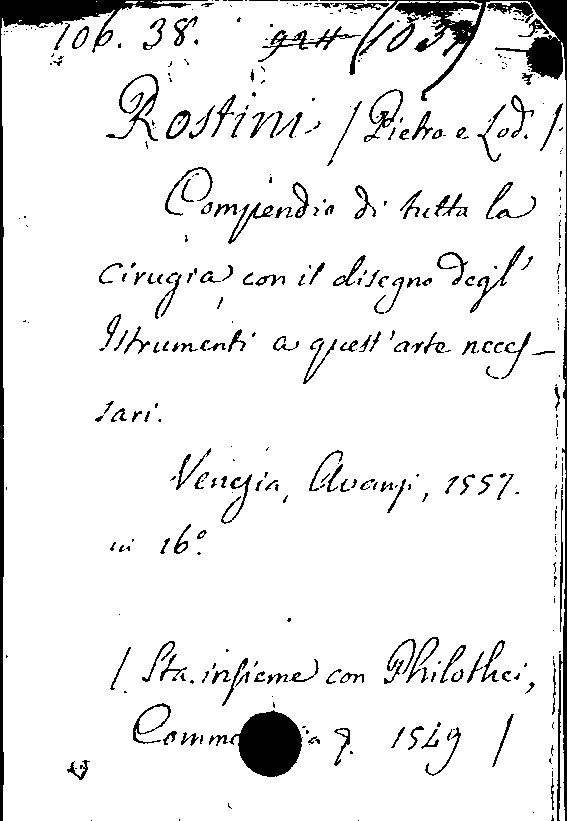 106. 38. (103.)
Rostini / Pietro e Lod. /
Compendio di tutta la
cirugia, con il disegno degl'
Istrumenti a quest'arte neces-
sari.
Venezia, Avanzi, 1557.
in 16°.
/ Sta insieme con Philothei,
1549 /